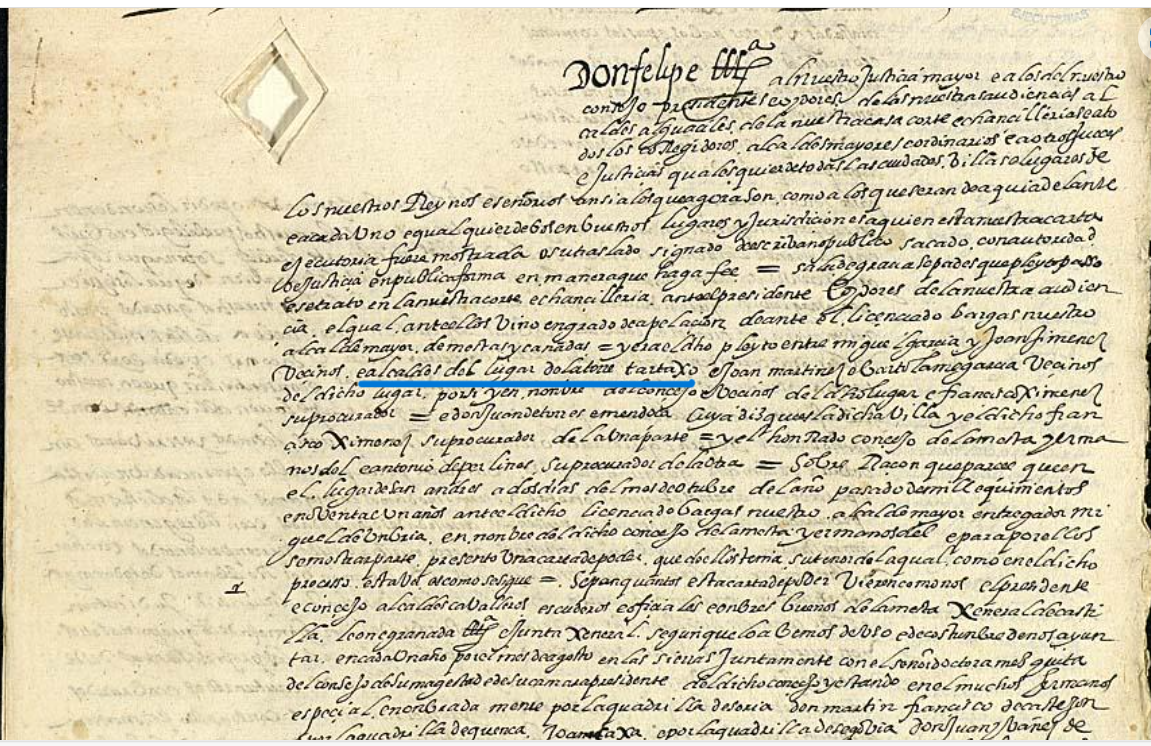 EJECUTORIAS
Don felipe etta a nuestro Justicia mayor e a los del nuestro
consejo presidentes e oydores de las nuestras audiencias al
caldes alguaciles de la nuestra casa corte e chancillerias e a to
dos los corregidores alcaldes mayores e ordinarios e a otros Jueces
e Justicias qualesquier de todas las ciudades Villas e lugares de
los nuestros Reynos e señorios ansi a los que agora son como a los que seran de aqui adelante
e a cada Uno e qualquier de bos en buestros lugares y Jurisdiciones a quien esta nuestra carta
ejecutoria fuere mostrada o su traslado signado de escrivano publico sacado con autoridad
de Justicia en publica forma en manera que haga fee = salud e gracia sepades que pleyto passo
e se trato en la nuestra corte e chancilleria ante el presidente e oydores de la nuestra audien
cia el qual ante ellos Vino en grado de apelacion de ante el licenciado bargas nuestro
alcalde mayor de mestas y cañadas = y era el dho pleyto entre miguel garcia y Joan ximenez
Vecinos e alcaldes del lugar de la torre tartaxo e Joan martinez e bartolome garcia Vecinos
del dicho lugar por si y en nonbre del concejo e Vecinos del dho lugar e francisco Ximenez
su procurador = e don Juan de mendoca cuya diz que es la dicha Villa y el dicho fran
cisco Ximenez su procurador de la Una parte = y el honrrado concejo de la mesta y erma
nos del e antonio de perlines su procurador de la otra = Sobre Racon que parece que en
el lugar de san andres a dos dias del mes de otubre del año pasado de mill e quinientos
e noventa e Un años ante el dicho licenciado bargas nuestro alcalde mayor entregador mi
guel de Unbria en nonbre del dicho concejo de la mesta y ermanos del e para por ellos
se mostrar parte presento Una carta de poder que de ellos tenia su tenor de la qual como en el dicho
proceso estava es como se sigue = Sepan quantos esta carta de poder Vieren como nos el presidente
e concejo alcaldes cavalleros escuderos e oficiales e onbres buenos de la mesta Xeneral de casti
lla leon e granada etta e Junta Xeneral segun que lo abemos de Uso e de costunbre de nos ayun
tar en cada Un año por el mes de agosto en las sierras Juntamente con el señor doctor amesquita
del consejo de su magestad e de su camara presidente del dicho concejo y estando en el muchos ermanos
especial e nonbrada mente por la quadrilla de soria don martin francisco de castejon
por la quadrilla de quenca Joan e por la quadrilla de segovia don Juan ybañez de